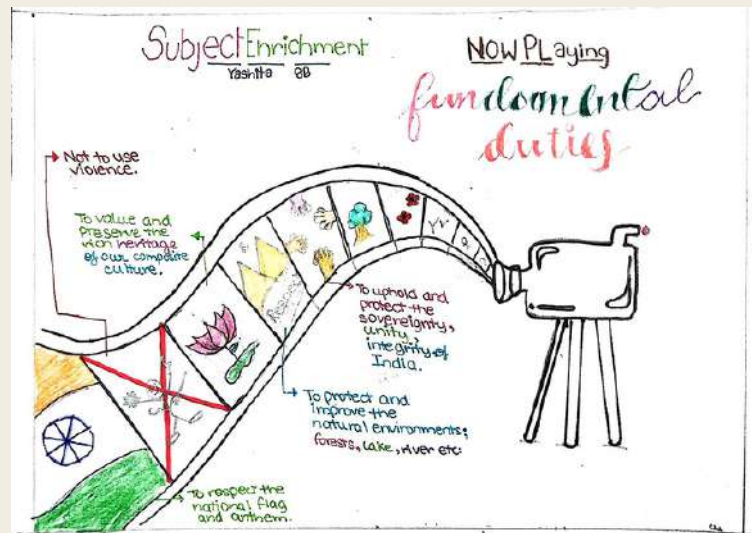 Subject Enrichment
Yashita 8B
NOW PLaying
fundamental
duties
Not to use
violence.
To value and
Preserve the
rich heritage
of our composite
culture.
Respect
To uphold and
protect the
sovereignty,
unity,
integrity of
India.
To protect and
improve the
natural environments;
forests, lake, river etc
To respect the
national flag
and anthem.